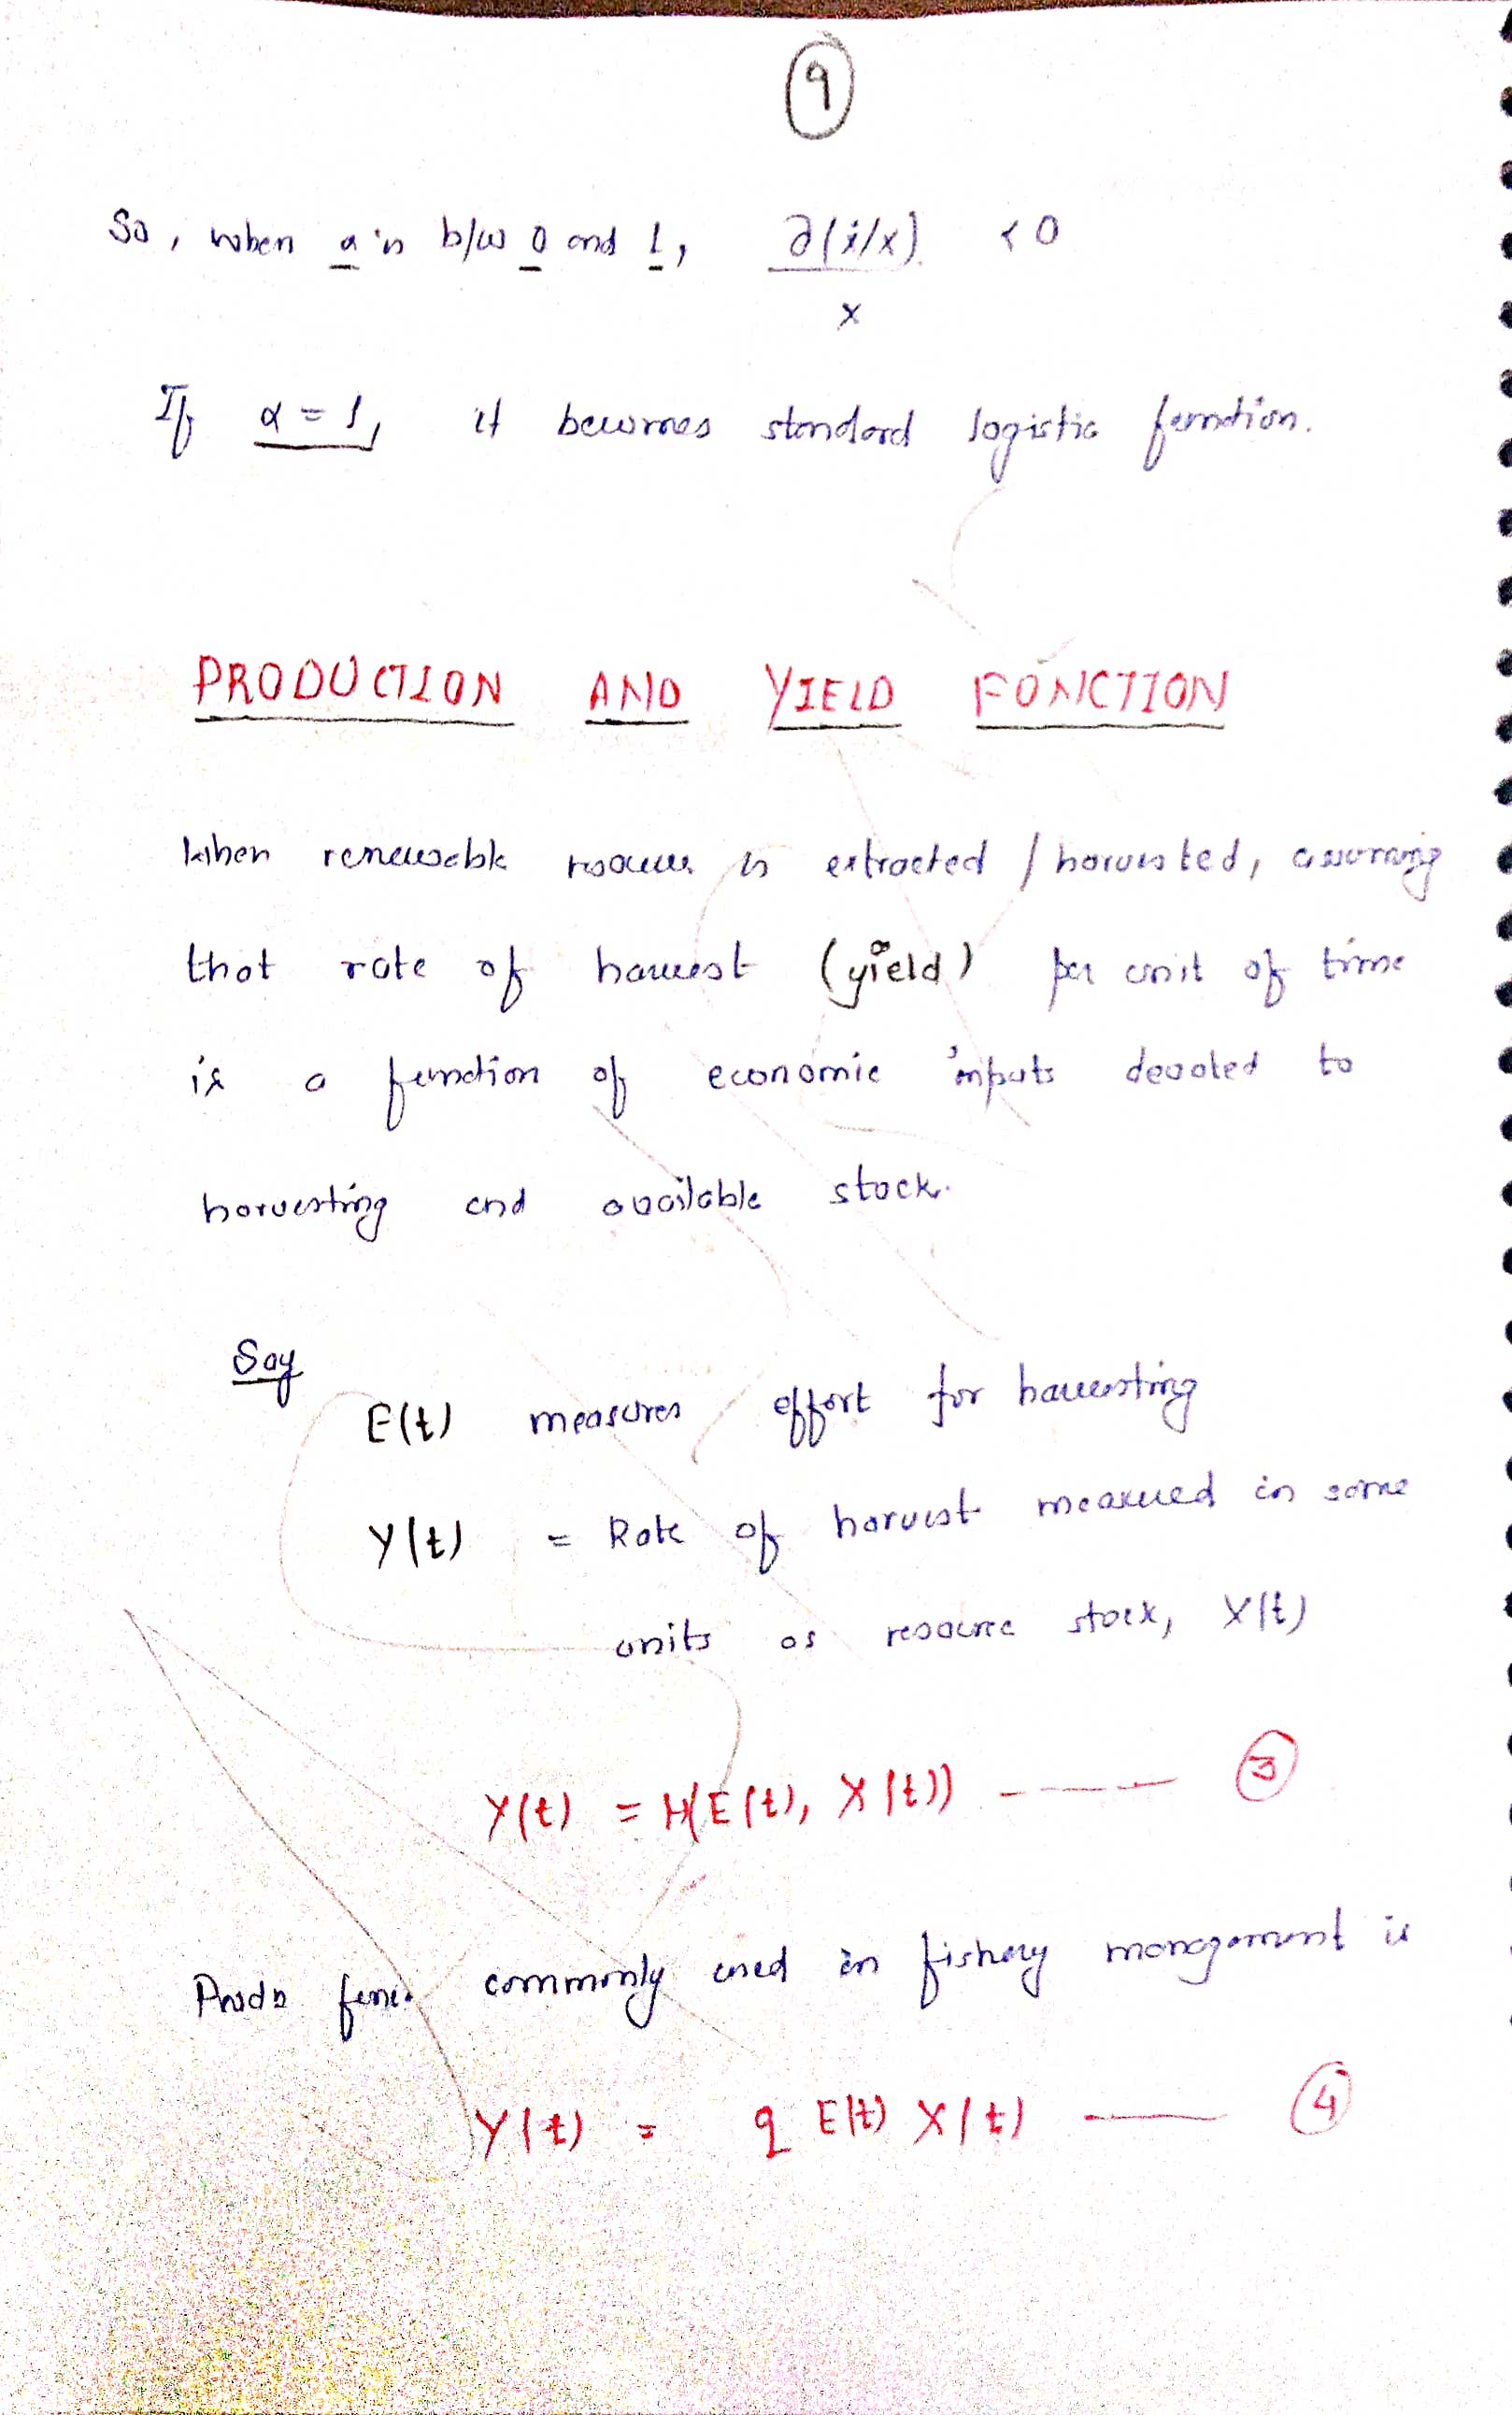 9
So, when a is b/w 0 and 1, ∂(ẋ/x) < 0
x
If α = 1, it becomes standard logistic function.
PRODUCTION AND YIELD FUNCTION
When renewable resource is extracted / harvested, assuming
that rate of harvest (yield) per unit of time
is a function of economic inputs devoted to
harvesting and available stock.
Say
E(t) measures effort for harvesting
Y(t) = Rate of harvest measured in same
units as resource stock, X(t)
Y(t) = H(E(t), X(t)) ---- 3
Prodn func. commonly used in fishery management is
Y(t) = q E(t) X(t) — 4